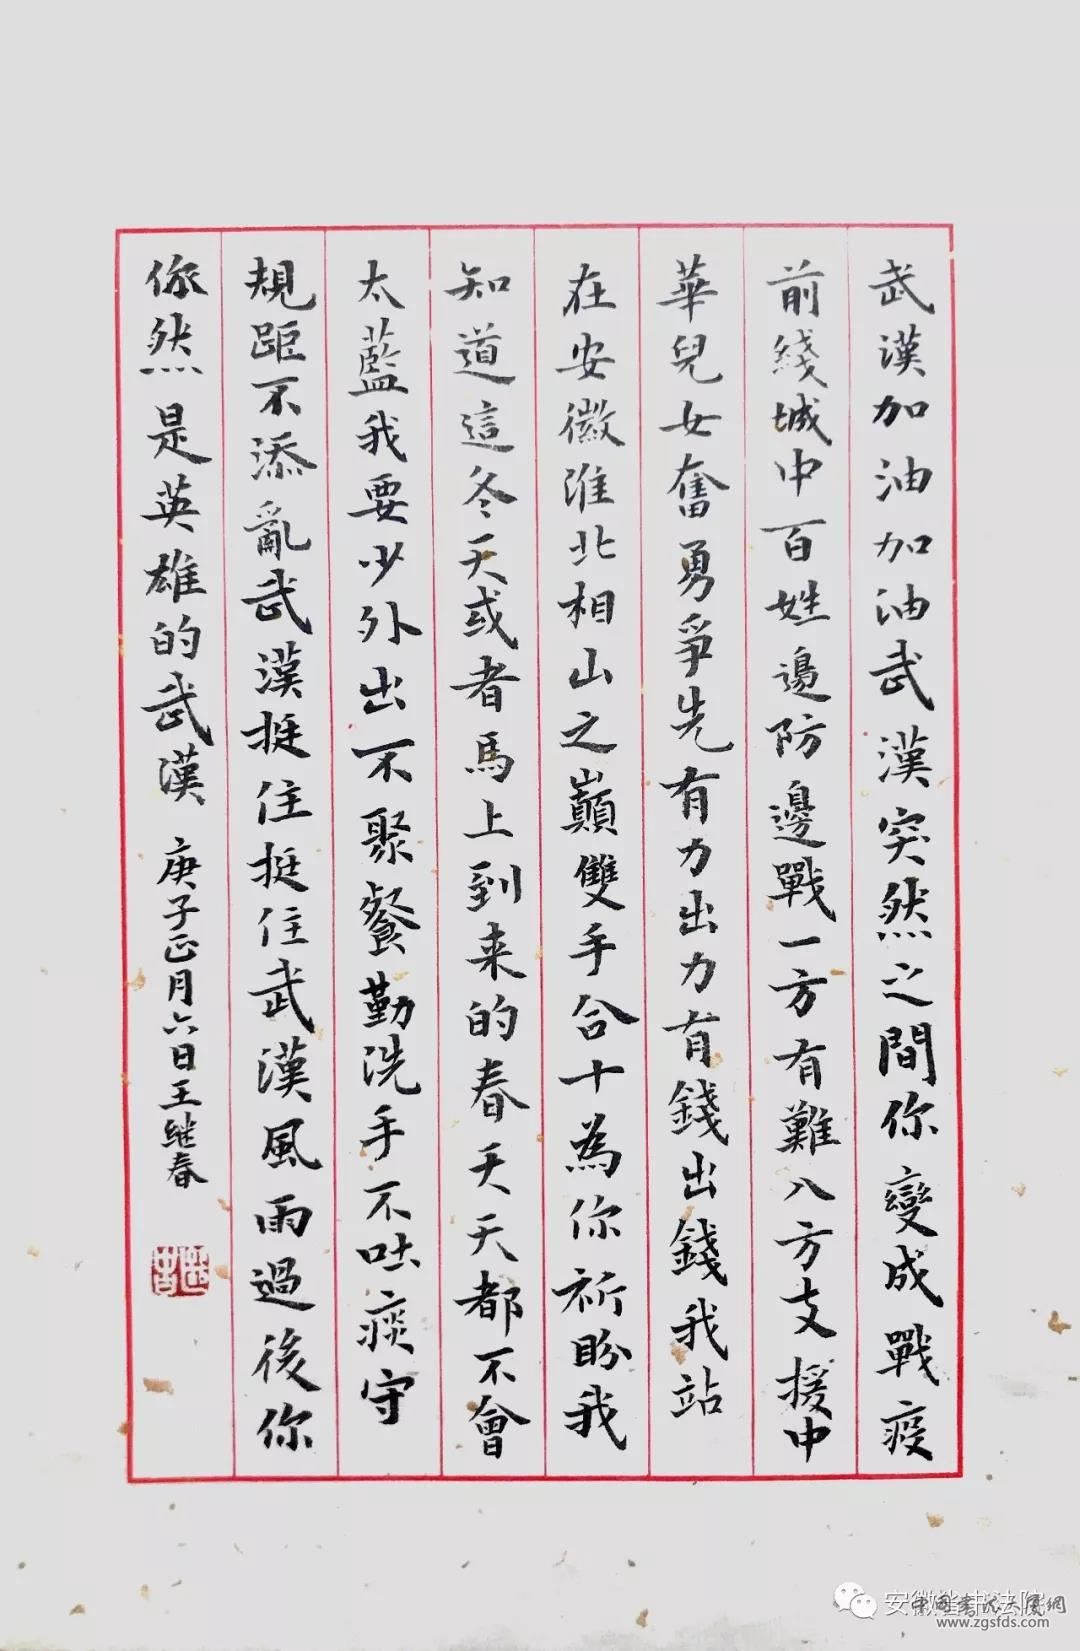 武漢加油加油武漢突然之間你變成戰疫
前綫城中百姓邊防邊戰一方有難八方支援中
華兒女奮勇爭先有力出力有錢出錢我站
在安徽淮北相山之巔雙手合十為你祈盼我
知道這冬天或者馬上到来的春天天都不會
太藍我要少外出不聚餐勤洗手不吐痰守
規距不添亂武漢挺住挺住武漢風雨過後你
依然是英雄的武漢 庚子正月六日王继春
www.zgsfds.com